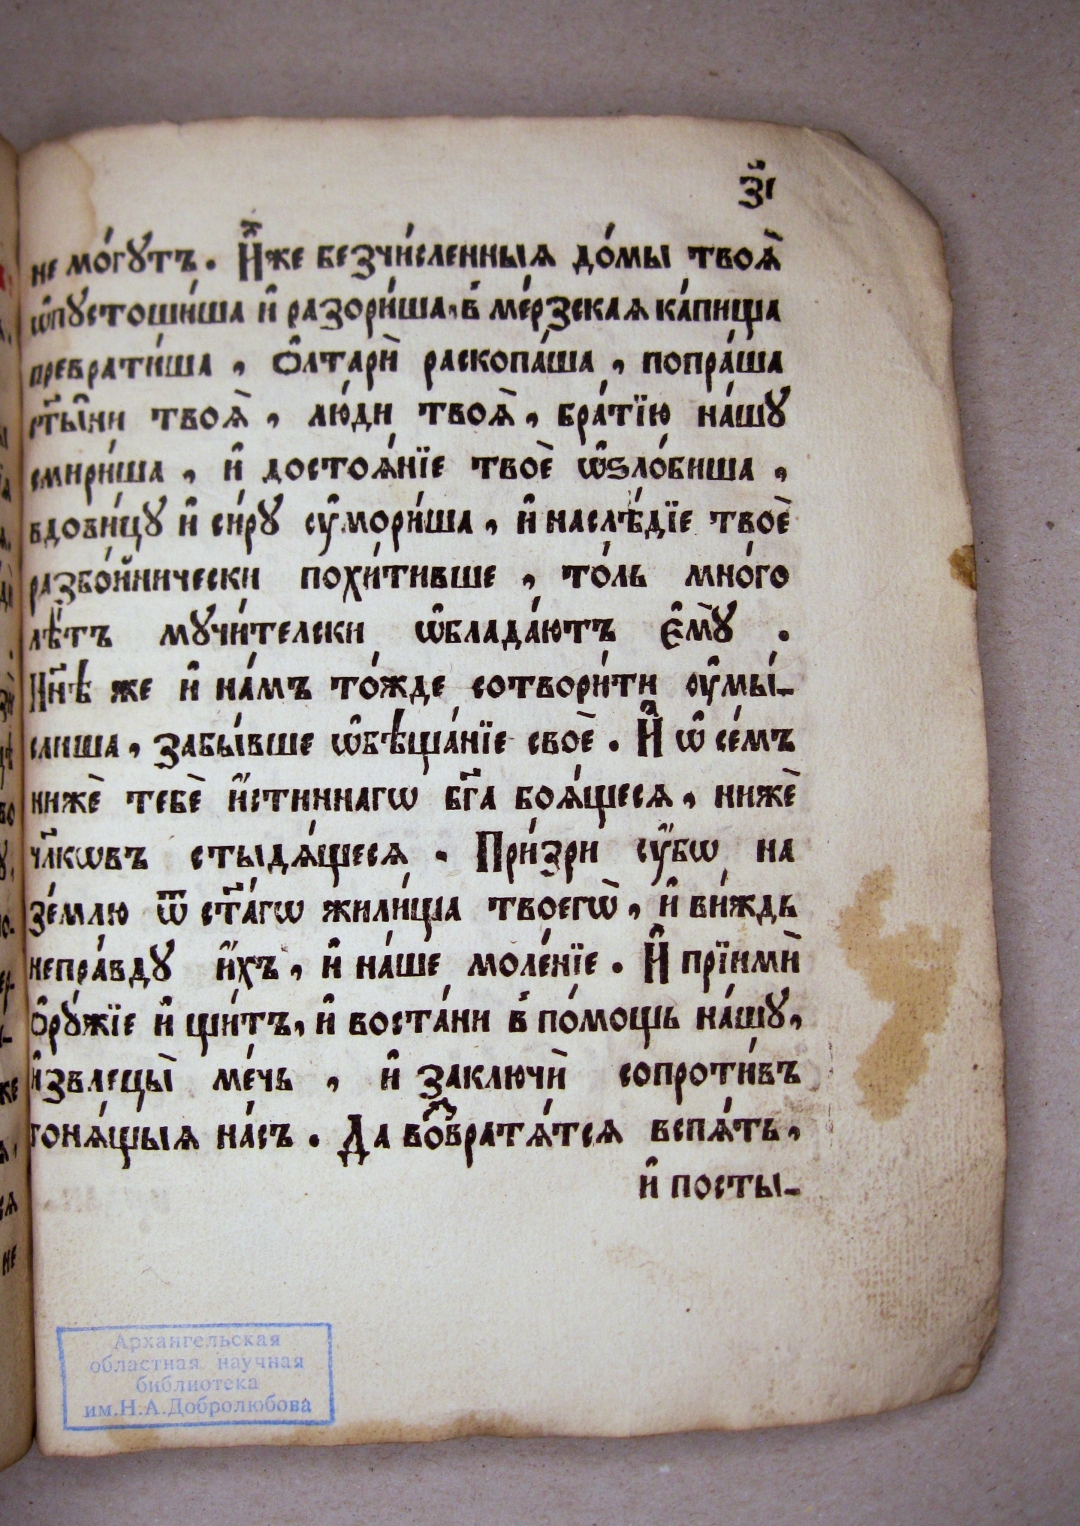 з҃і
не мо́гꙋтъ. И҆̀же безчи́сленныѧ до́мы твоѧ̀
ѡ҆пꙋстоши́ша и҆ разори́ша, в̾ ме́рзскаѧ ка́пища
преврати́ша, ѻ҆лтари̑ раскопа́ша, попра́ша
ст҃ы̑ни твоѧ̀, лю́ди твоѧ̀, бра́тїю на́шꙋ
смири́ша, и҆ достоѧ́нїе твоѐ ѡ҆ѕло́биша,
вдови́цꙋ и҆ си́рꙋ ᲂу҆мори́ша, и҆ наслѣ́дїе твоѐ
разбо́йнически похи́тивше, то́ль мно́го
лѣ́тъ мꙋчи́телски ѡ҆блада́ютъ є҆мꙋ̀.
Нн҃ѣ же и҆ на́мъ то́жде сотвори́ти ᲂу҆мы́-
слиша, забы́вше ѡ҆бѣща́нїе своѐ. И҆ ѡ҆ се́мъ
нижѐ тебѐ и҆́стиннагѡ бг҃а боѧ́щесѧ, нижѐ
чл҃кѡвъ стыдѧ́щесѧ. При́зри ᲂу҆́бѡ на
зе́млю ѿ ст҃а́гѡ жили́ща твоегѡ̀, и҆ ви́ждь
непра́вдꙋ и҆́хъ, и҆ на́ше моле́нїе. И҆ прїимѝ
ѻ҆рꙋ́жїе и҆ щи́тъ, и҆ воста́ни в̾ по́мощь на́шꙋ,
и҆звлецы̀ ме́чь, и҆ заключѝ сопроти́въ
гонѧ́щыѧ на́съ. Да воⷥвратѧ́тсѧ вспѧ́ть,
и҆ посты-
Архангельская
областная научная
библиотека
им.Н.А.Добролюбова